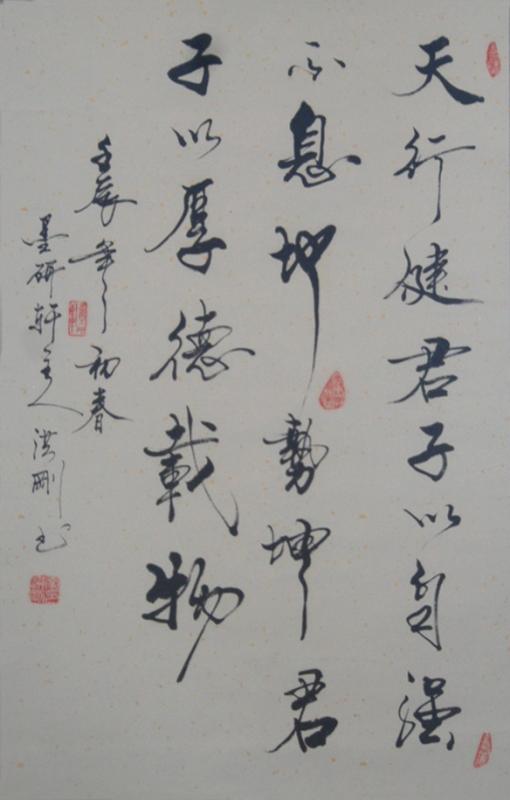 天行健君子以自强
不息地勢坤君
子以厚德載物
壬辰年初春
墨研軒主人洪剛书